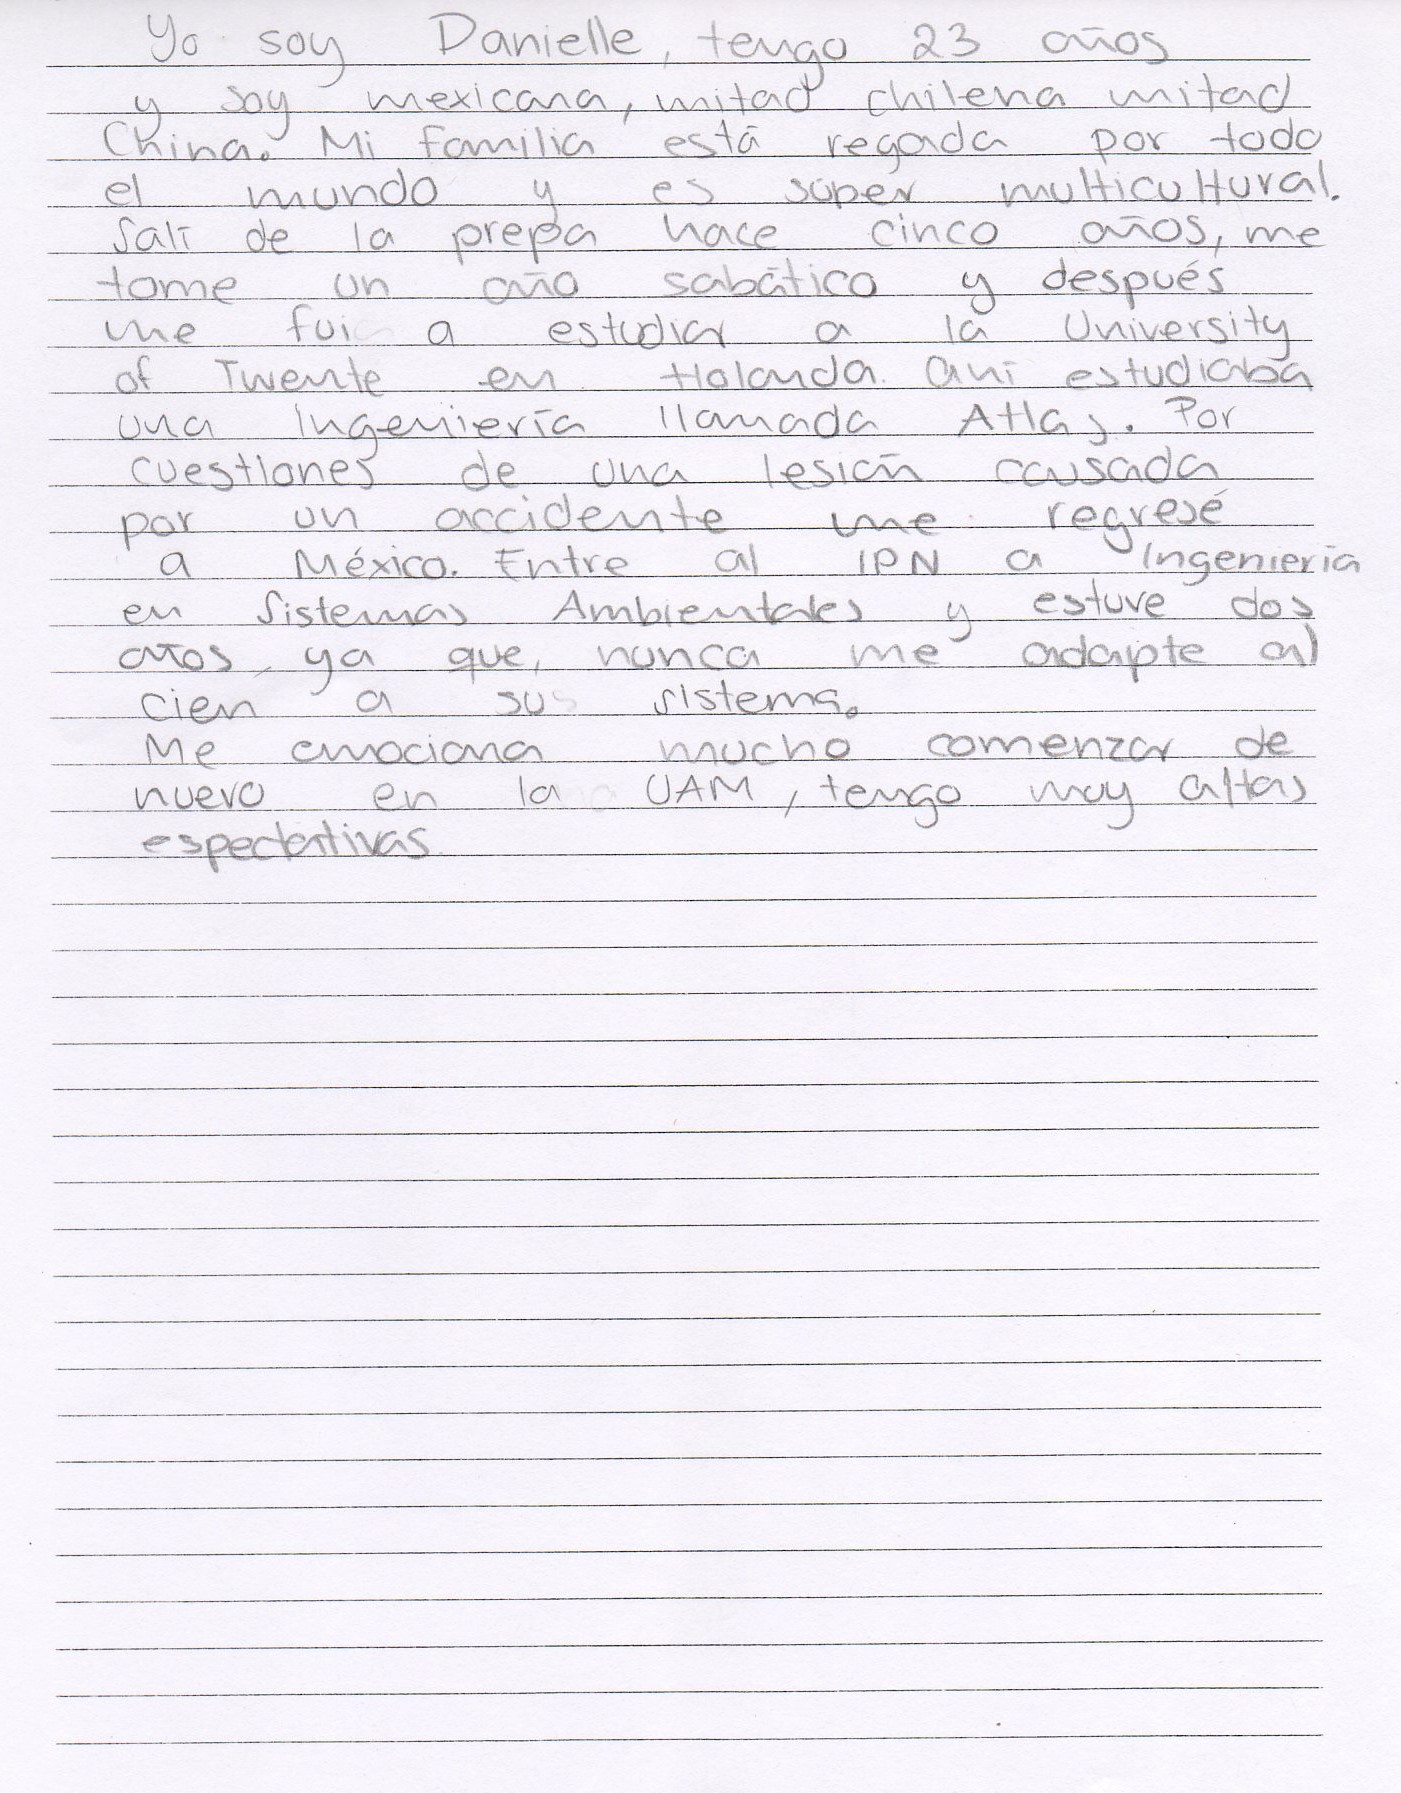 Yo soy Danielle, tengo 23 años
y soy mexicana, mitad chilena mitad
China. Mi familia está regada por todo
el mundo y es súper multicultural.
Salí de la prepa hace cinco años, me
tome un año sabático y después
me fui a estudiar a la University
of Twente en Holanda. Ahí estudiaba
una Ingeniería llamada Atlas. Por
cuestiones de una lesión causada
por un accidente me regresé
a México. Entre al IPN a Ingeniería
en Sistemas Ambientales y estuve dos
años, ya que, nunca me adapte al
cien a su sistema.
Me emociona mucho comenzar de
nuevo en la UAM, tengo muy altas
espectativas